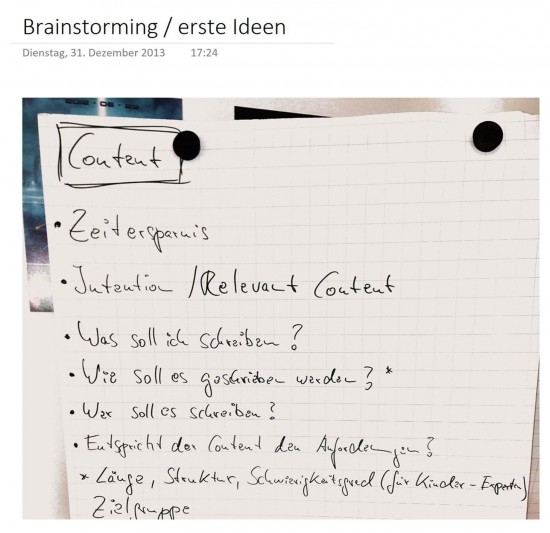 Brainstorming / erste Ideen
Dienstag, 31. Dezember 2013 17:24
Content
• Zeitersparnis
• Intention / Relevant Content
• Was soll ich schreiben?
• Wie soll es geschrieben werden? *
• Wer soll es schreiben?
• Entspricht der Content den Anforderungen?
* Länge, Struktur, Schwierigkeitsgrad (für Kinder - Experten)
Zielgruppe